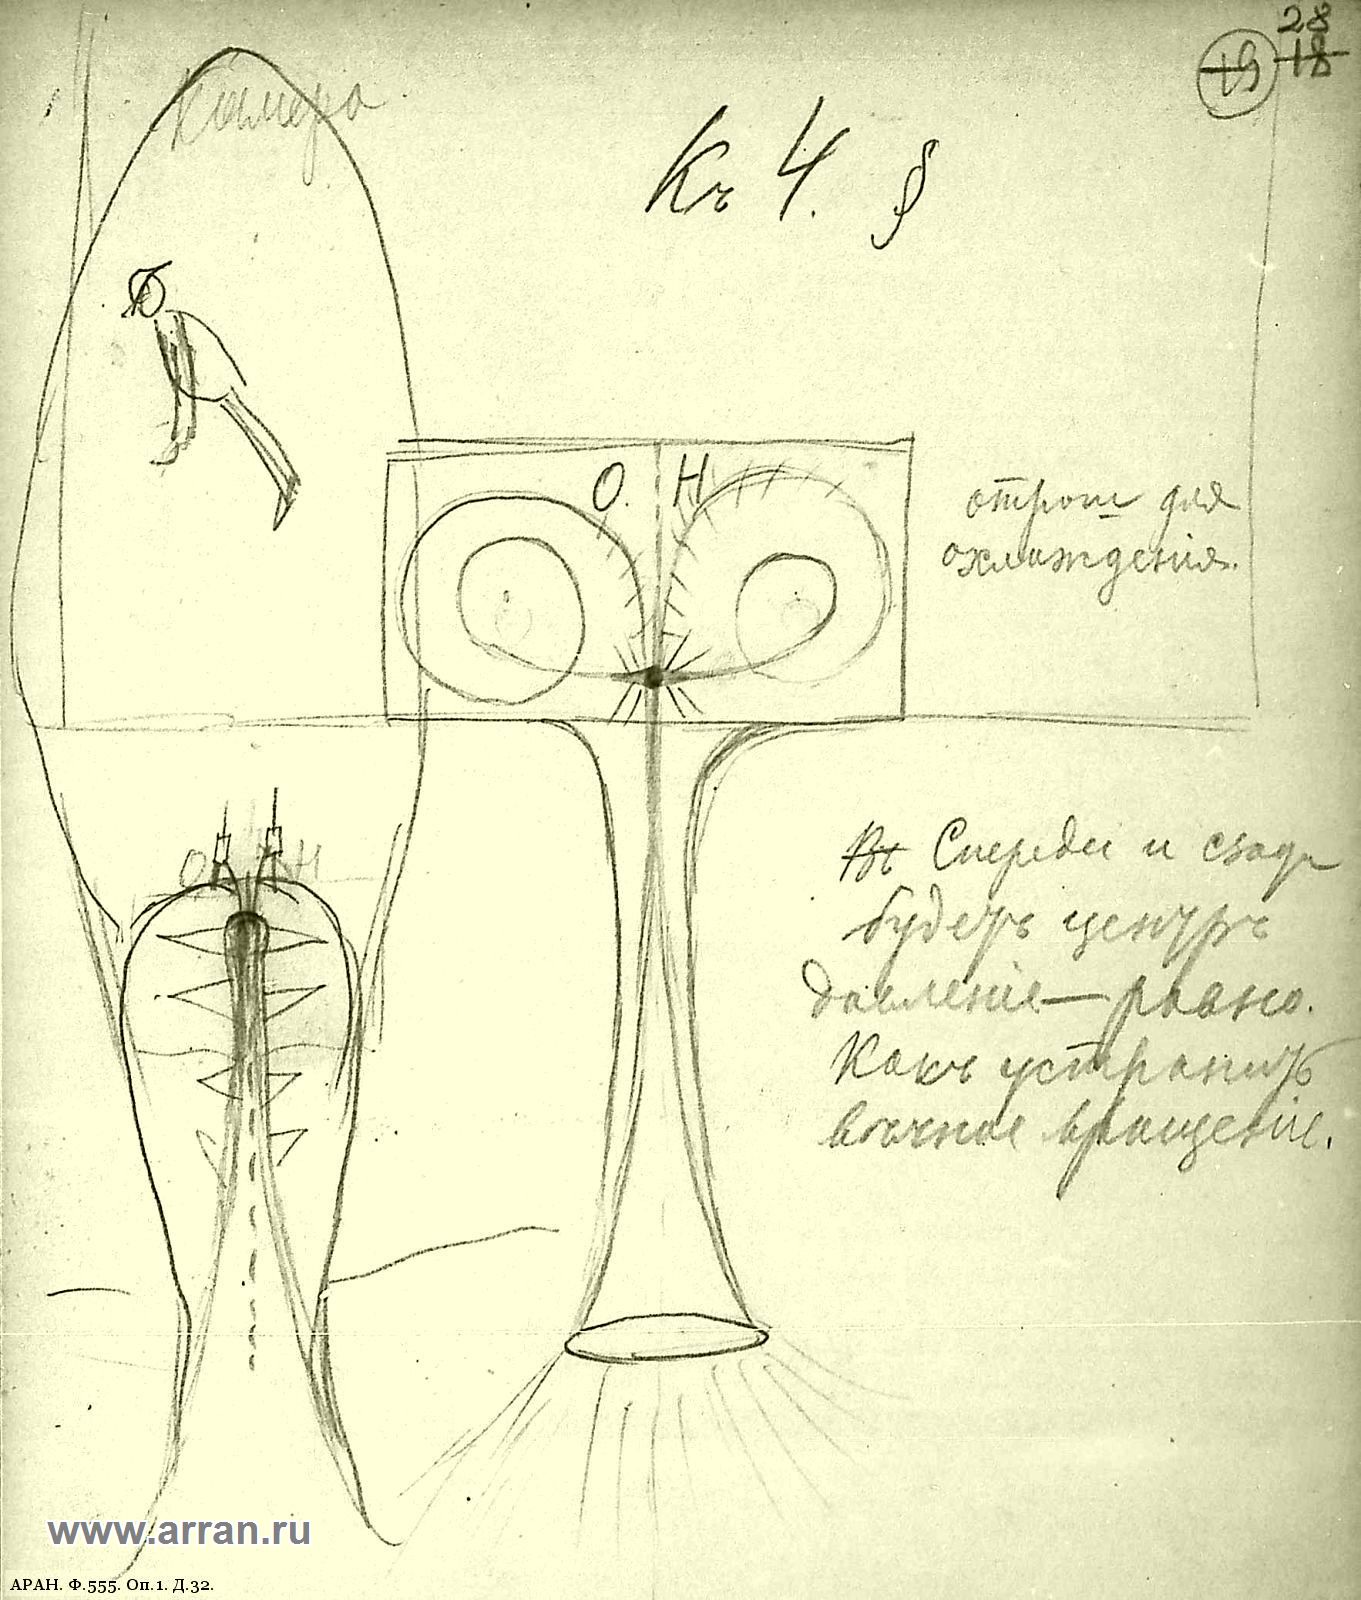 28
19 18
Камера
Къ 4. §
О. Н
отрост для
охлаждения.
О Н
Въ Спереди и сзади
будетъ центръ
давленiе — равно.
Какъ устранить
вращенiе.
www.arran.ru
АРАН. Ф.555. Оп.1. Д.32.